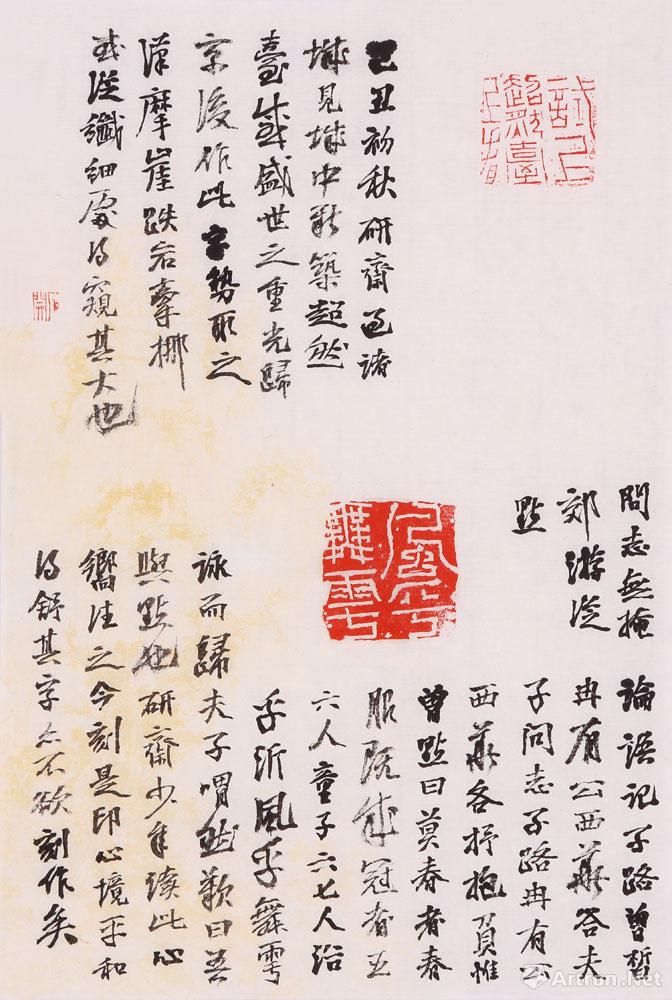 試上
超然臺
上看
己丑初秋研齋過諸
城見城中新築超然
臺感盛世之重光歸
京後作此字勢取之
漢摩崖跌宕拏挪
或從纖細處得窺其大也
問志無掩
郊游從
點
風乎
舞雩
論語記子路曾皙
冉有公西華答夫
子問志子路冉有公
西華各抒抱負惟
曾點曰莫春者春
服既成冠者五
六人童子六七人浴
乎沂風乎舞雩
詠而歸夫子喟然歎曰吾
與點也研齋少年讀此心
嚮往之今刻是印心境平和
得舒其字亦不欲刻作矣
Artron.Net